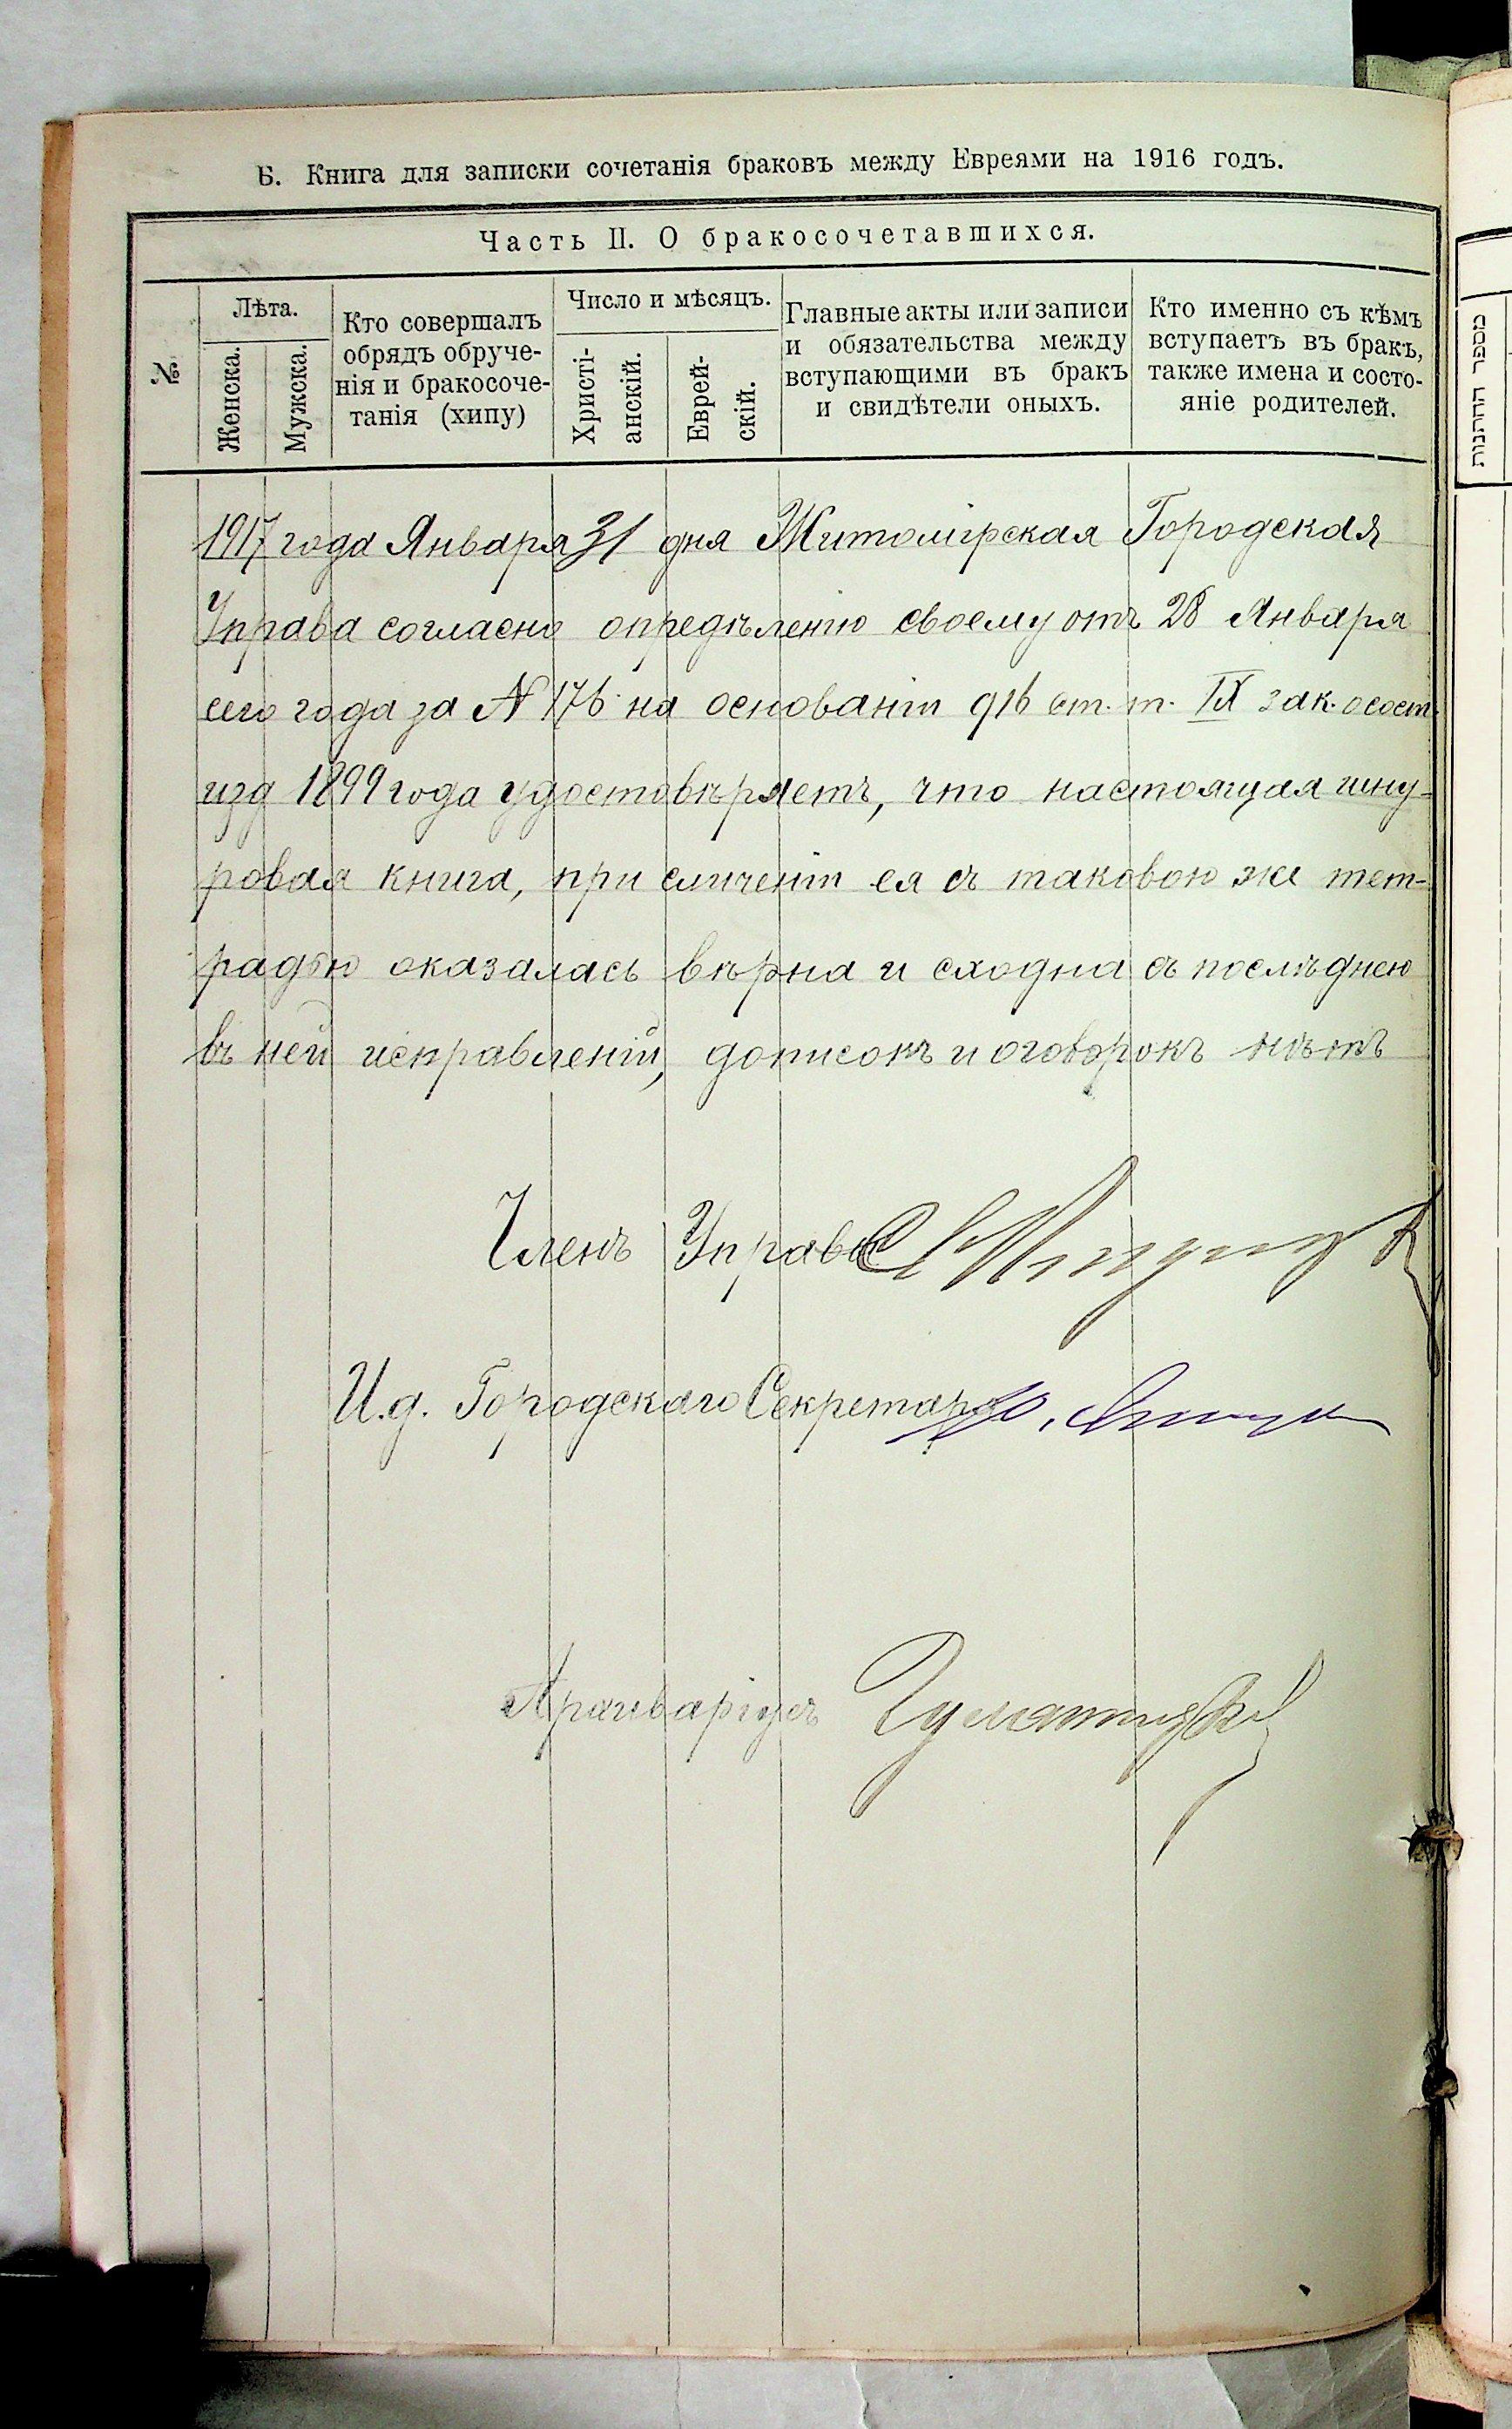 Б. Книга для записки сочетанія браковъ между Евреями на 1916 годъ.
Часть II. О бракосочетавшихся.
№
Лѣта.
Женска.
Мужска.
Кто совершалъ
обрядъ обруче-
нія и бракосоче-
танія (хипу)
Число и мѣсяцъ.
Христі-
анскій.
Еврей-
скій.
Главные акты или записи
и обязательства между
вступающими въ бракъ
и свидѣтели оныхъ.
Кто именно съ кѣмъ
вступаетъ въ бракъ,
также имена и состо-
яніе родителей.
מספר החתנות
1917 года Января 31 дня Житомірская Городская
Управа согласно опредѣленію своему отъ 28 Января
сего года за № 176 на основаніи 916 ст. т. IX зак. о сост.
изд 1899 года удостовѣряетъ, что настоящая шну-
ровая книга, при сличеніи ея съ таковою же тет-
радью оказалась вѣрна и сходна съ послѣднею
въ ней исправленій, дописокъ и оговорокъ нѣтъ
Членъ Управы
И.д. Городскаго Секретаря
Архиваріусъ